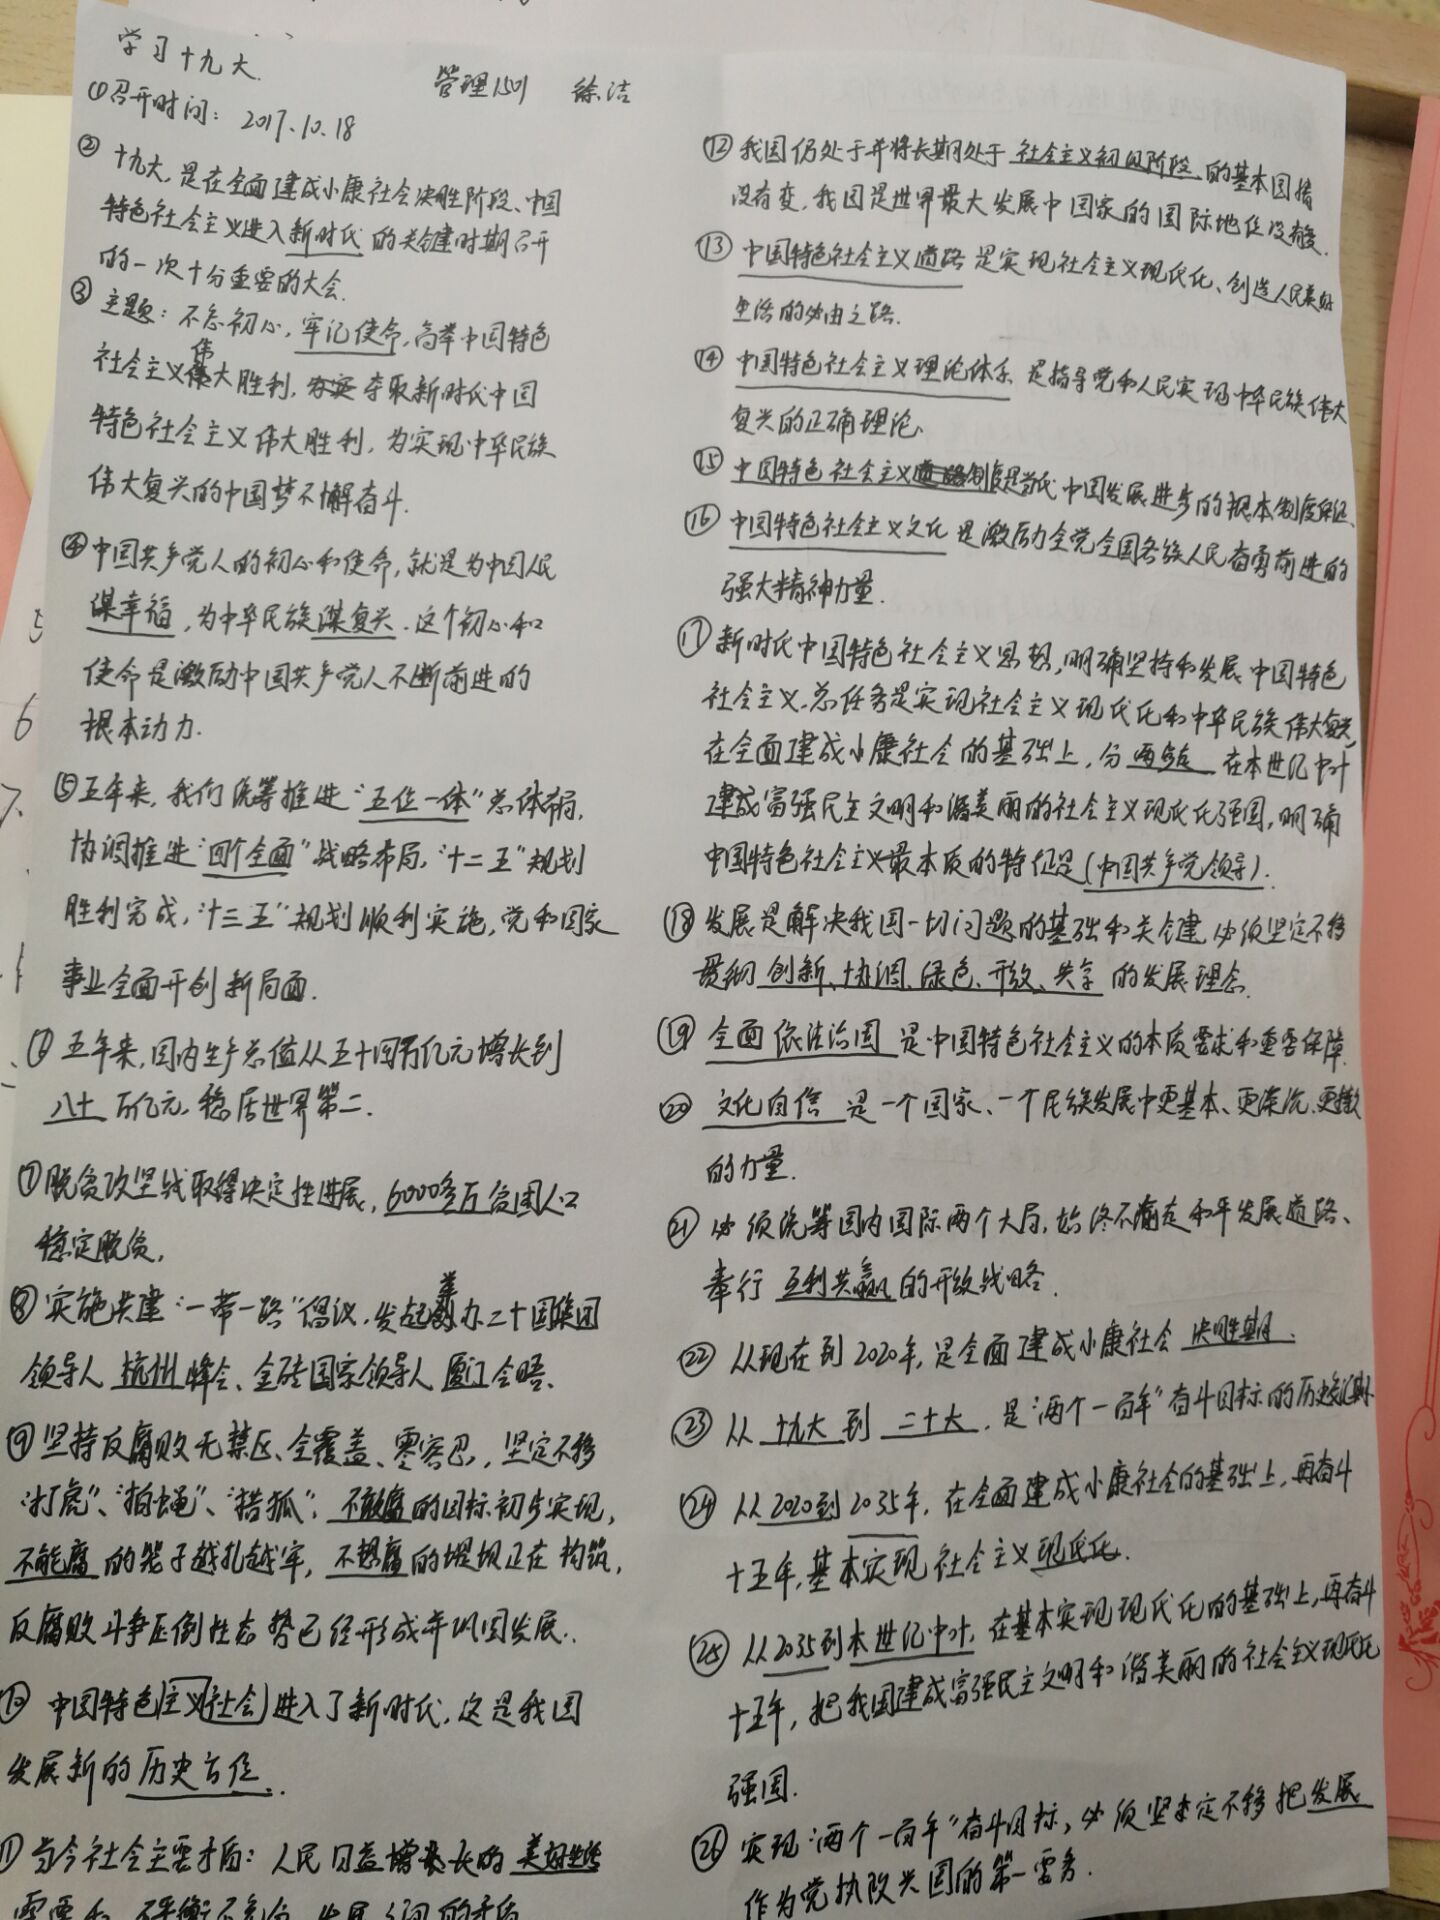 学习十九大.
管理1501 徐洁
①召开时间：2017.10.18
②十九大,是在全面建成小康社会决胜阶段、中国
特色社会主义进入新时代的关键时期召开
的一次十分重要的大会.
③主题：不忘初心,牢记使命,高举中国特色
社会主义伟大胜利,夺取新时代中国
特色社会主义伟大胜利,为实现中华民族
伟大复兴的中国梦不懈奋斗.
④中国共产党人的初心和使命,就是为中国人民
谋幸福,为中华民族谋复兴.这个初心和
使命是激励中国共产党人不断前进的
根本动力.
⑤五年来,我们统筹推进“五位一体”总体布局,
协调推进“四个全面”战略布局,“十二五”规划
胜利完成,“十三五”规划顺利实施,党和国家
事业全面开创新局面.
⑥五年来,国内生产总值从五十四万亿元增长到
八十万亿元,稳居世界第二.
⑦脱贫攻坚战取得决定性进展,6000多万贫困人口
稳定脱贫,
⑧实施共建“一带一路”倡议,发起举办二十国集团
领导人杭州峰会、金砖国家领导人厦门会晤、
⑨坚持反腐败无禁区、全覆盖、零容忍,坚定不移
“打虎”、“拍蝇”、“猎狐”,不敢腐的目标初步实现,
不能腐的笼子越扎越牢,不想腐的堤坝正在构筑,
反腐败斗争压倒性态势已经形成并巩固发展.
⑩中国特色主义社会进入了新时代,这是我国
发展新的历史方位.
⑪当今社会主要矛盾：人民日益增长的美好生活
需要和不平衡不充分发展之间的矛盾
⑫我国仍处于并将长期处于社会主义初级阶段的基本国情
没有变,我国是世界最大发展中国家的国际地位没有变.
⑬中国特色社会主义道路是实现社会主义现代化、创造人民美好
生活的必由之路.
⑭中国特色社会主义理论体系是指导党和人民实现中华民族伟大
复兴的正确理论.
⑮中国特色社会主义制度是当代中国发展进步的根本制度保证.
⑯中国特色社会主义文化是激励全党全国各族人民奋勇前进的
强大精神力量.
⑰新时代中国特色社会主义思想,明确坚持和发展中国特色
社会主义.总任务是实现社会主义现代化和中华民族伟大复兴,
在全面建成小康社会的基础上,分两步走在本世纪中叶
建成富强民主文明和谐美丽的社会主义现代化强国,明确
中国特色社会主义最本质的特征是(中国共产党领导).
⑱发展是解决我国一切问题的基础和关键必须坚定不移
贯彻创新、协调、绿色、开放、共享的发展理念.
⑲全面依法治国是中国特色社会主义的本质要求和重要保障.
⑳文化自信是一个国家、一个民族发展中更基本、更深沉、更持久
的力量.
㉑必须统筹国内国际两个大局,始终不渝走和平发展道路、
奉行互利共赢的开放战略.
㉒从现在到2020年,是全面建成小康社会决胜期.
㉓从十九大到二十大,是“两个一百年”奋斗目标的历史交汇期
㉔从2020到2035年,在全面建成小康社会的基础上,再奋斗
十五年,基本实现社会主义现代化.
㉕从2035到本世纪中叶,在基本实现现代化的基础上,再奋斗
十五年,把我国建成富强民主文明和谐美丽的社会主义现代化
强国.
㉖实现“两个一百年”奋斗目标,必须坚定不移把发展
作为党执政兴国的第一要务.
5
6
7.